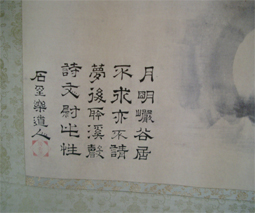 月明巖谷居
不求亦不請
夢後聆溪歡
詩文尉此性
石里樂道人